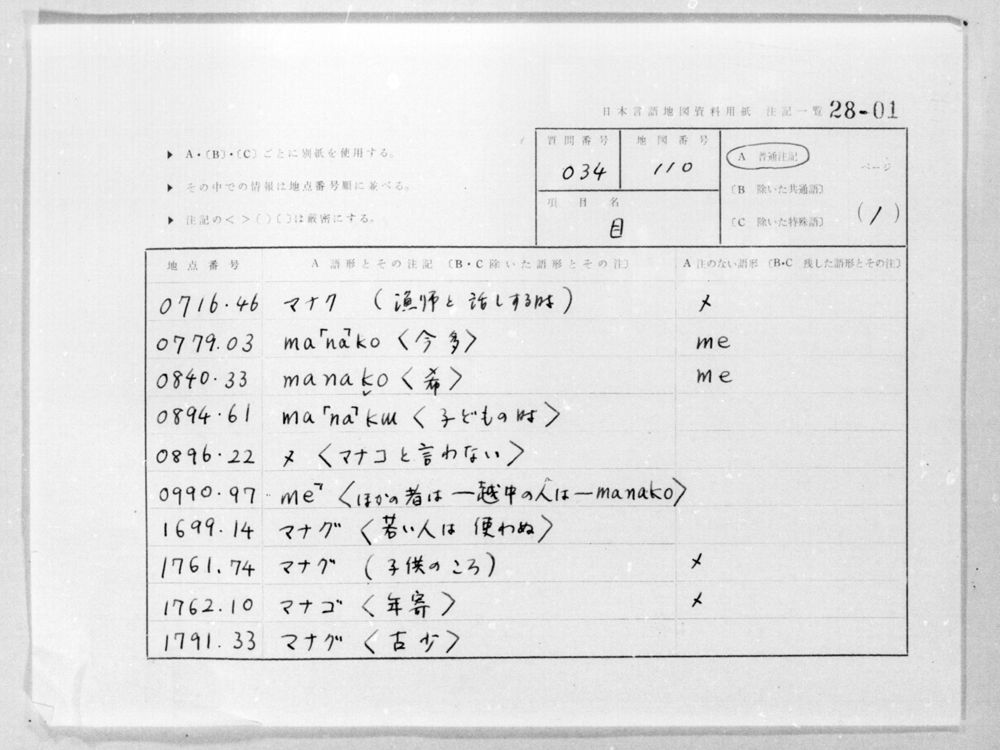 日本言語地図資料用紙 注記一覧 28-01
▶ A・〔B〕・〔C〕ごとに別紙を使用する。
▶ その中での情報は地点番号順に並べる。
▶ 注記の< >( )〔 〕は厳密にする。
質問番号 034
地図番号 110
項目名 目
A 普通注記
〔B 除いた共通語〕
〔C 除いた特殊語〕
ページ
(1)
地点番号 A 語形とその注記〔B・C 除いた語形とその注〕 A 注のない語形〔B・C 残した語形とその注〕
0716.46 マナク (漁師と話しする時) メ
0779.03 ma「na」ko <今多> me
0840.33 manako <希> me
0894.61 ma「na」kɯ <子どもの時>
0896.22 メ <マナコと言わない>
0990.97 me」 <ほかの者は―越中の人は―manako>
1699.14 マナグ <若い人は使わぬ>
1761.74 マナグ (子供のころ) メ
1762.10 マナゴ <年寄> メ
1791.33 マナグ <古少>